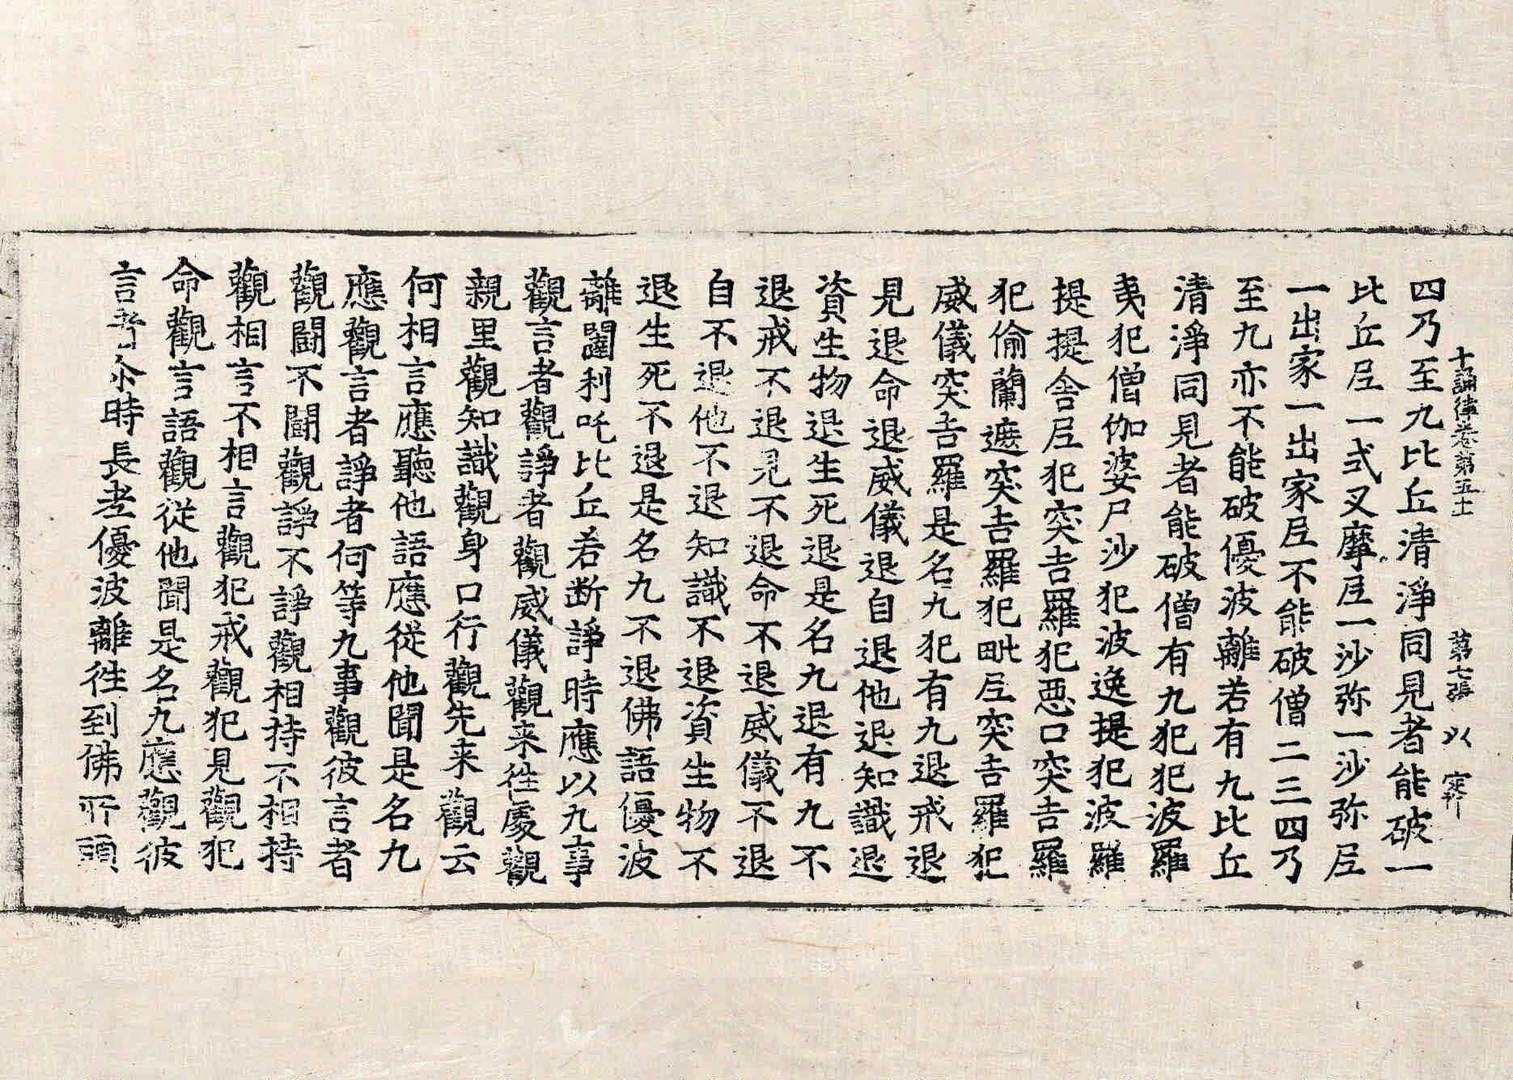 十誦律卷第五十 第七張 以
四乃至九比丘清淨同見者能破一
比丘尼一式叉摩尼一沙弥一沙弥尼
一出家一出家尼不能破僧二三四乃
至九亦不能破優波離若有九比丘
清淨同見者能破僧有九犯犯波羅
夷犯僧伽婆尸沙犯波逸提犯波羅
提提舍尼犯突吉羅犯惡口突吉羅
犯偷蘭遮突吉羅犯毗尼突吉羅犯
威儀突吉羅是名九犯有九退戒退
見退命退威儀退自退他退知識退
資生物退生死退是名九退有九不
退戒不退見不退命不退威儀不退
自不退他不退知識不退資生物不
退生死不退是名九不退佛語優波
離闥利吒比丘若断諍時應以九事
觀言者觀諍者觀威儀觀来徃處觀
親里觀知識觀身口行觀先来觀云
何相言應聽他語應從他聞是名九
應觀言者諍者何等九事觀彼言者
觀鬪不鬪觀諍不諍觀相持不相持
觀相言不相言觀犯戒觀犯見觀犯
命觀言語觀從他聞是名九應觀彼
言者尒時長老優波離徃到佛所頭